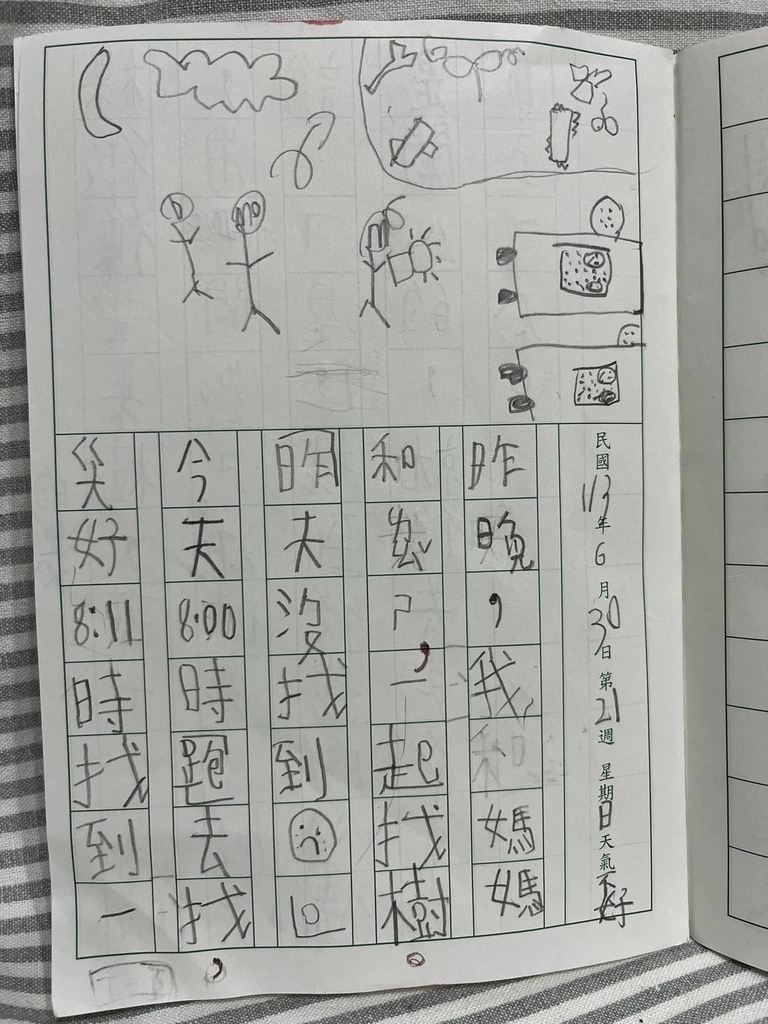 民國113年6月30日第21週 星期日天氣不好
昨晚，我和媽媽
和，一起找樹。
昨天沒找到回
今天8:00時跑去找，
好8:11時找到一